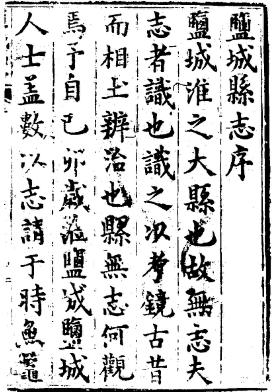 鹽城縣志序
鹽城淮之大縣也故無志夫
志者識也識之以考鏡古昔
而相土辨治也縣無志何觀
焉予自己卯歲蒞鹽城鹽城
人士盖數以志請于時魚鼈